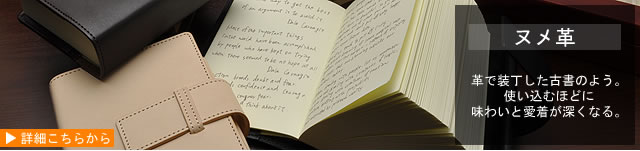 way to get the best
of an argument is to avoid it.
Dale Carnegie
Most of the important things
world have been accomplished
by people who have kept on trying
when there seemed to be no hope at all
Dale Carnegie
breeds doubt and fear
confidence and courage
conquer fear
think about it
ヌメ革
革で装丁した古書のよう。
使い込むほどに
味わいと愛着が深くなる。
▶ 詳細こちらから